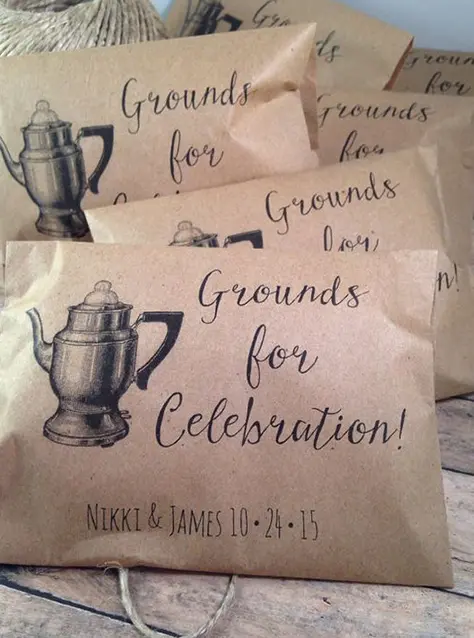 Grounds
for
Celebration!
NIKKI & JAMES 10•24•15
Grounds
for
Grounds
for
Grounds
for
Grounds
for